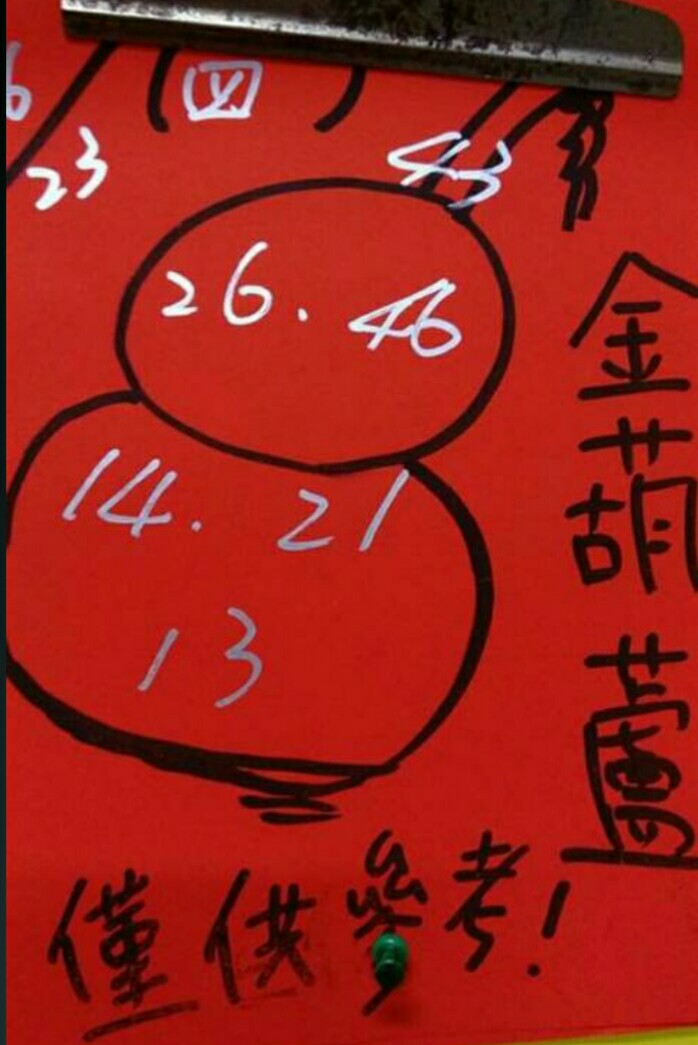 (四)
6
23
43
26. 46
14. 21
13
金葫蘆
僅供參考!